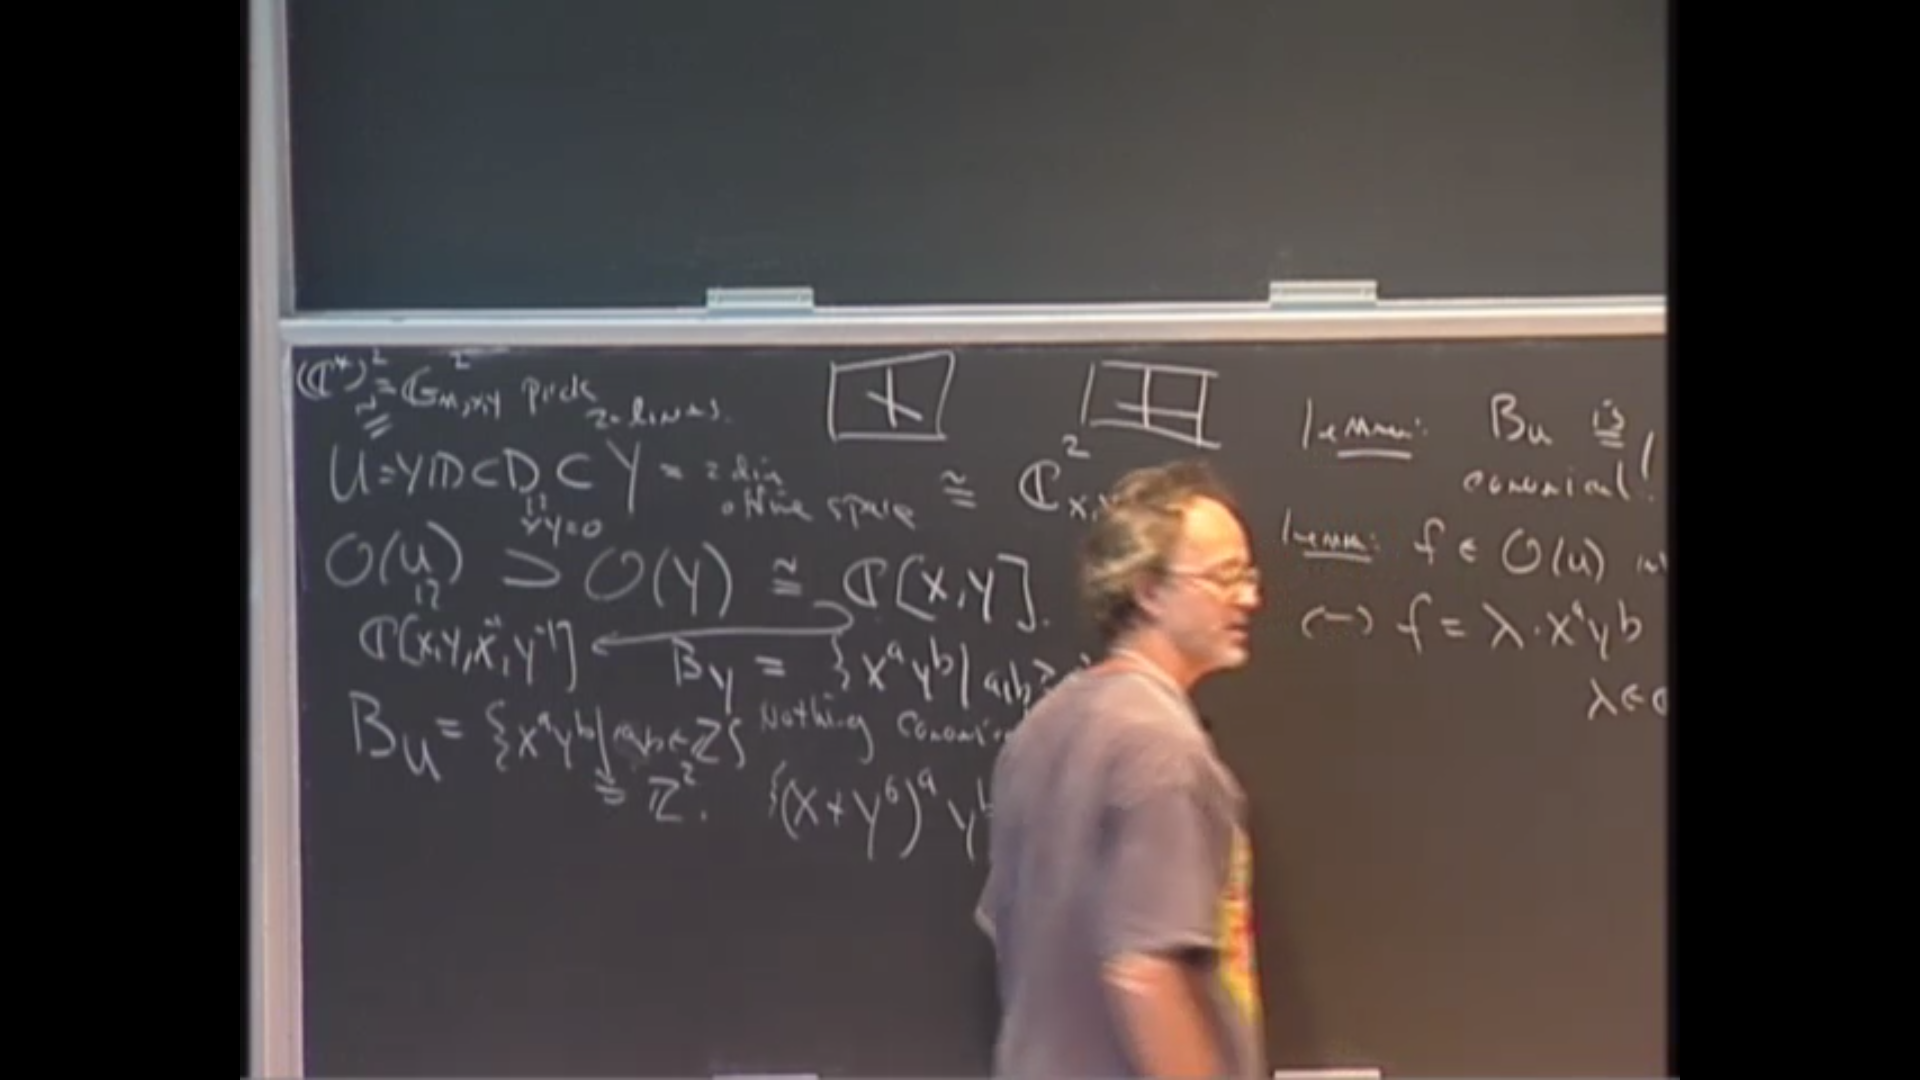 (ℂ*)² = 𝔾²m,x,y pick
≅ 2-lines.
U = Y\D ⊂ D ⊂ Y = 2 dim
affine space ≅ ℂ²x,
xy=0
O(U) ⊃ O(Y) ≅ ℂ[x,y].
ℂ[x,y,x⁻¹,y⁻¹] B_Y = {x^a y^b | a,b ≥
B_U = {x^a y^b | a,b ∈ ℤ} Nothing
≅ ℤ². {(x+y⁶)^a y^b
Lemma: B_U is
canonical!
Lemma: f ∈ O(U)
(→) f = λ·x^a y^b
λ ∈